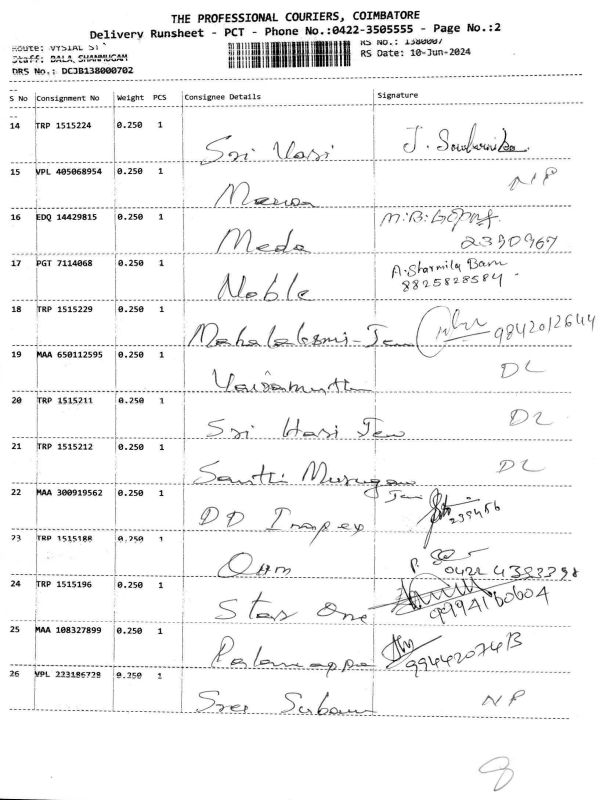 THE PROFESSIONAL COURIERS, COIMBATORE
Delivery Runsheet - PCT - Phone No.:0422-3505555 - Page No.:2
Route: VYSIAL ST RS No.: 1380007
Staff: BALA, SHANMUGAM RS Date: 10-Jun-2024
DRS No.: DCJB138000702
S No Consignment No Weight PCS Consignee Details Signature
14 TRP 1515224 0.250 1 Sri Vari
15 VPL 405068954 0.250 1 NP
16 EDQ 14429815 0.250 1 Meda 2390967
17 PGT 7114068 0.250 1 Noble A. Sharmila Banu
8825828584
18 TRP 1515229 0.250 1 Mahalakshmi 9842012644
19 MAA 650112595 0.250 1 DL
20 TRP 1515211 0.250 1 Sri Hari Jew DL
21 TRP 1515212 0.250 1 Santhi Murugan DL
22 MAA 300919562 0.250 1 DD Impex
23 TRP 1515188 0.250 1 Oam 0422 4383398
24 TRP 1515196 0.250 1 Star One
25 MAA 108327899 0.250 1 Palaniappa
26 VPL 223186728 0.250 1 NP
8